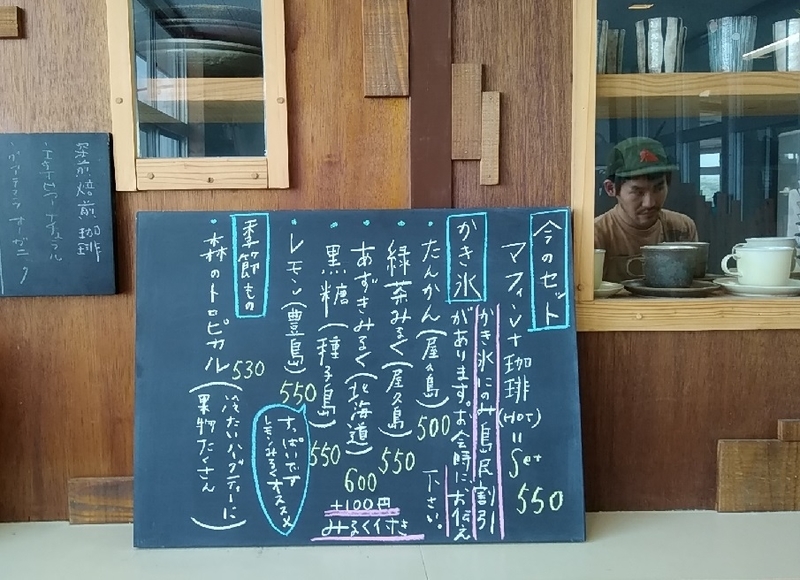 今のセット
マフィン+珈琲(HOT)=Set 550
かき氷
かき氷にのみ島民割引
があります。お会計時に、お伝え
下さい。
・たんかん(屋久島) 500
・緑茶みるく(屋久島) 550
・あずきみるく(北海道) 600
・黒糖(種子島) 550
+100円
みるく付き
・レモン(豊島) 550
すっぱいです
レモンみるくオススメ
季節もの
・森のトロピカル 530
(冷たいハーブティーに
果物たくさん)
焙煎珈琲